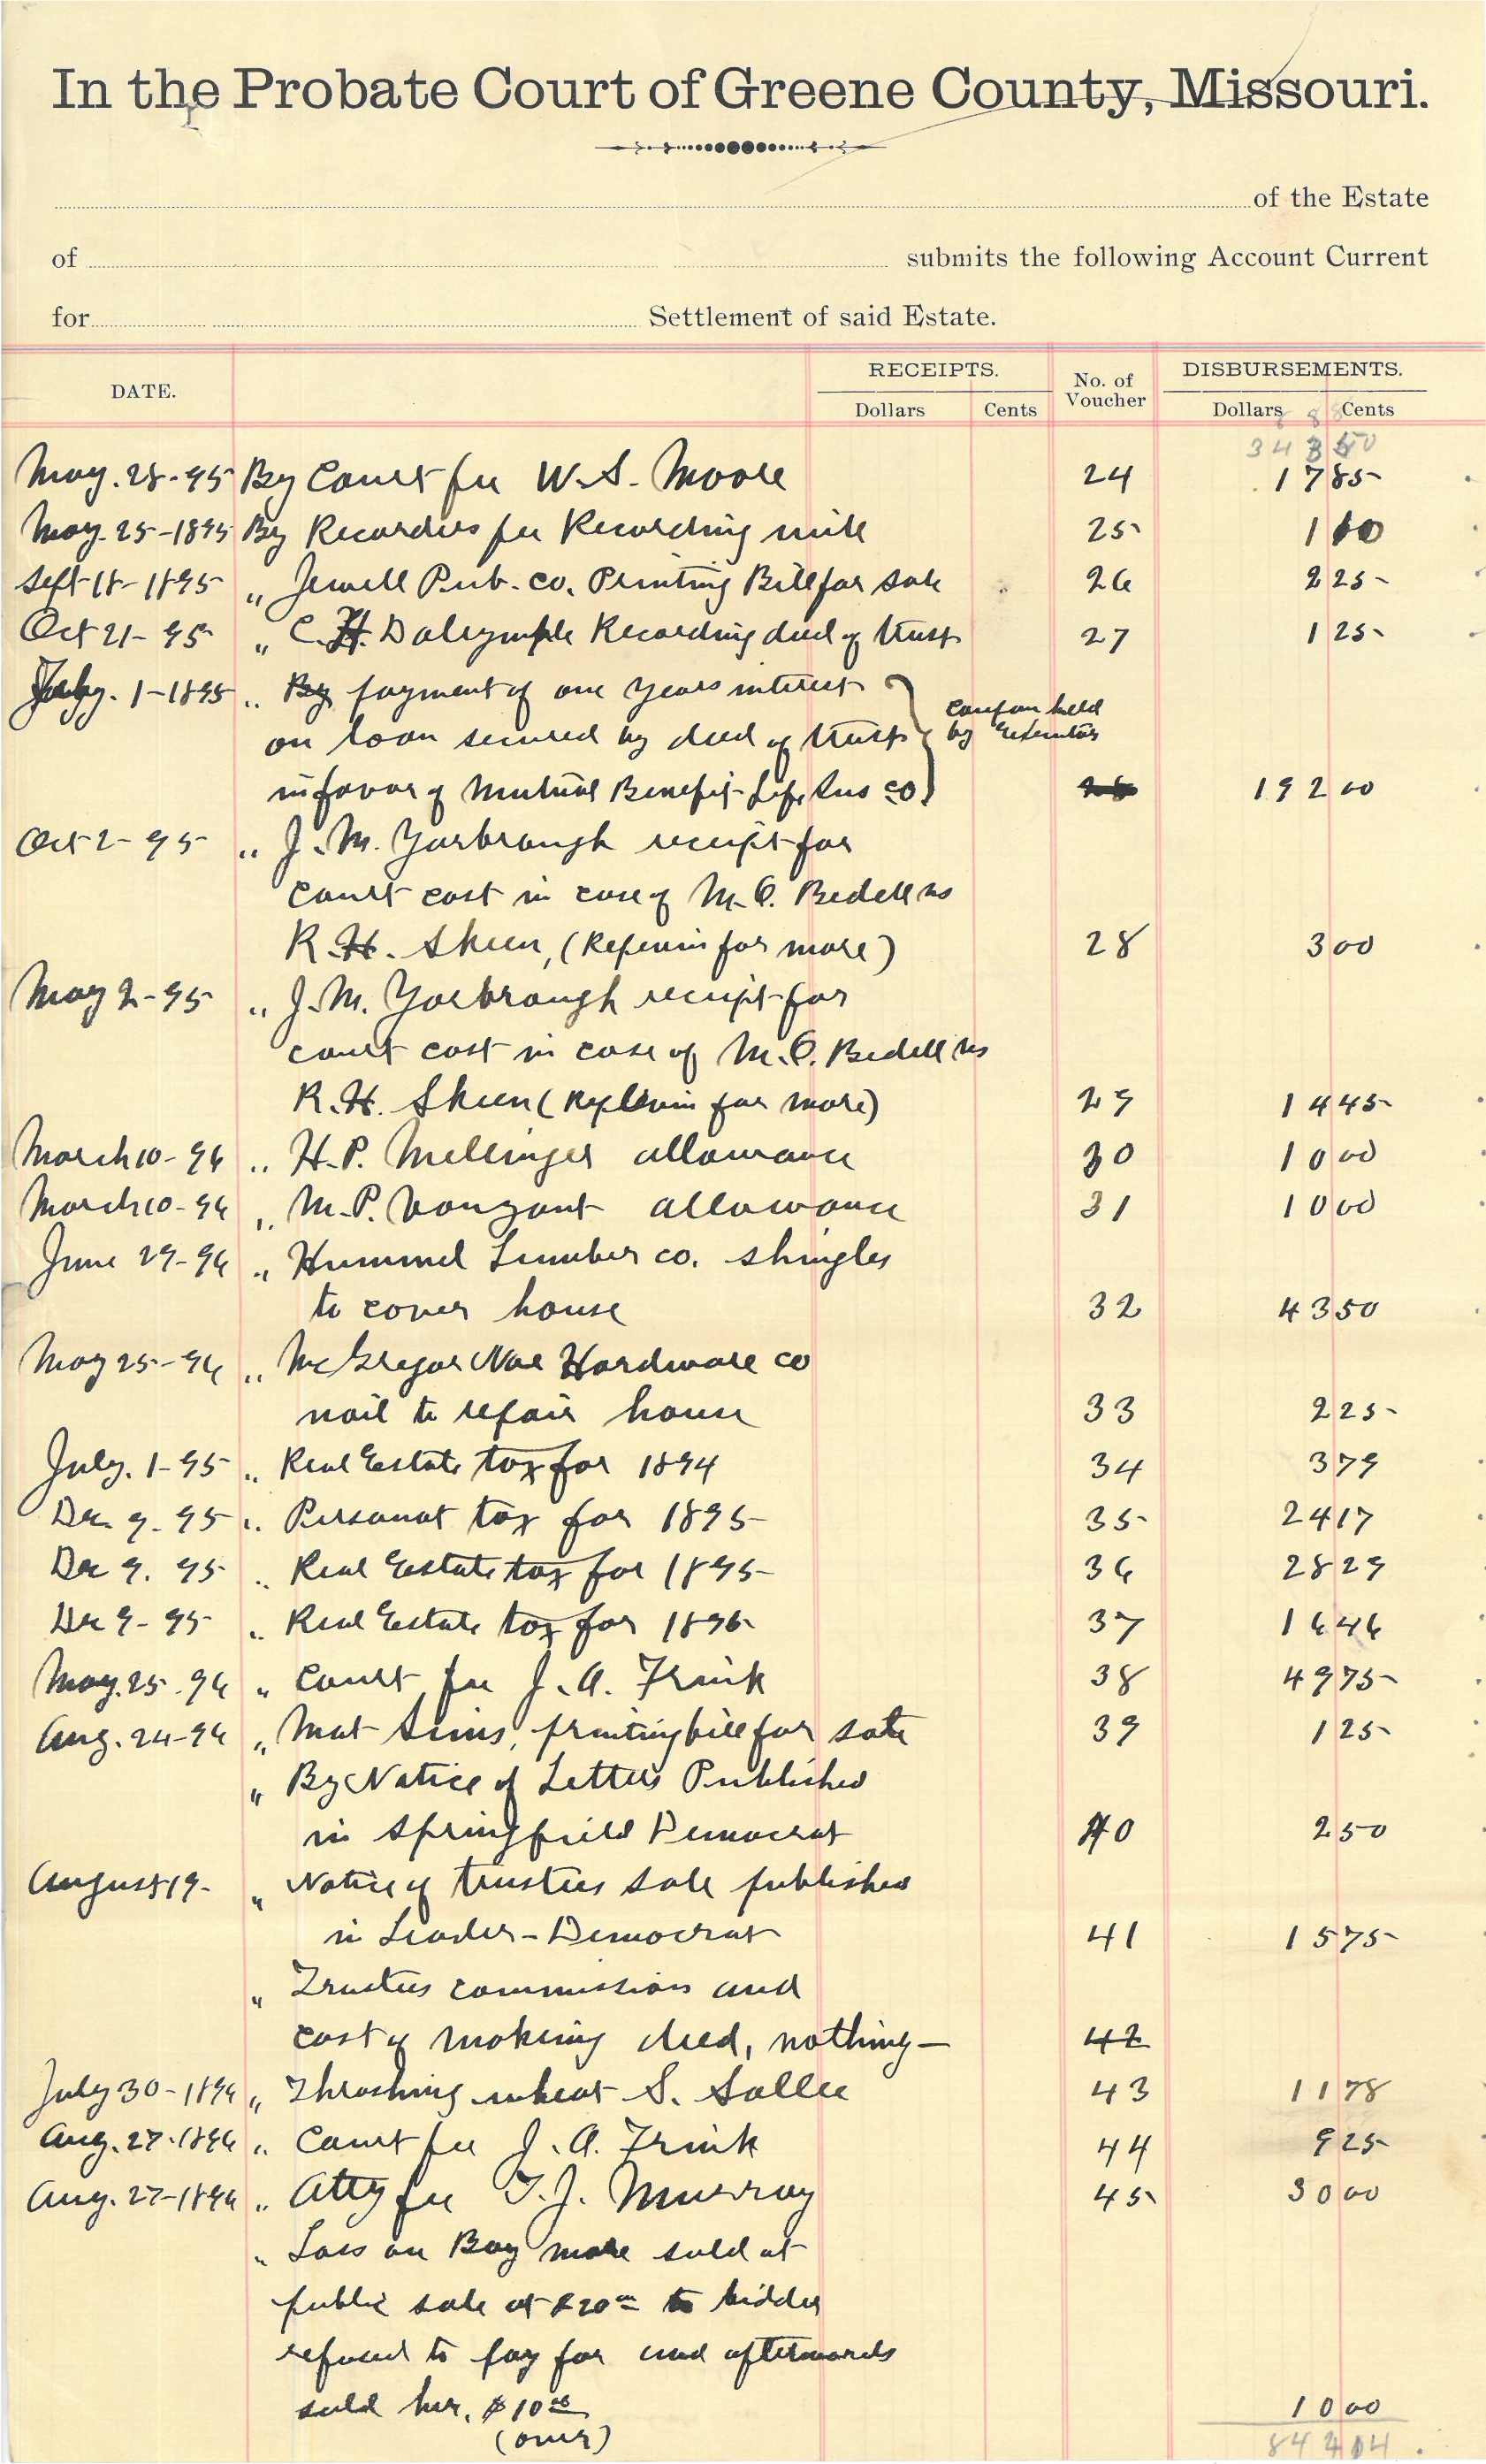 In the Probate Court of Greene County, Missouri.
of the Estate
of submits the following Account Current
for Settlement of said Estate.
DATE. RECEIPTS. Dollars Cents No. of Voucher DISBURSEMENTS. Dollars Cents
May. 28-95 By Court fee W. S. Moore 24 17 85
May. 25-1895 By Recorders fee Recording 25 1 10
Sept 18-1895 " Jewell Pub. Co. Printing Bill for sale 26 2 25
Oct 21-95 " C. H. Dalrymple Recording deed of trust 27 1 25
1-1895 " By payment of one years interest
on loan secured by deed of trust coupon held by Executor
in favor of Mutual Benefit Life Ins Co. 192 00
Oct 2-95 " J. M. Yarbrough receipt for
court cost in case of M. C. Bedell vs
R. H. Skeen, (Replevin for mare) 28 3 00
May 2-95 " J. M. Yarbrough receipt for
court cost in case of M. C. Bedell vs
R. H. Skeen (Replevin for mare) 29 14 45
March 10-96 " H. P. Mellinger allowance 30 10 00
March 10-96 " M. P. Vanzant allowance 31 10 00
June 29-96 " Hummel Lumber co. shingles
to cover house 32 43 50
May 25-96 " McGregor Noe Hardware co
nail to repair house 33 2 25
July. 1-95 " Real Estate tax for 1894 34 3 79
Dec. 9. 95 " Personal tax for 1895 35 24 17
Dec 9. 95 " Real Estate tax for 1895 36 28 29
Dec 9-95 " Real Estate tax for 37 16 46
May. 25. 96 " Court fee J. A. Frink 38 49 75
Aug. 24-96 " Mat Sims, printing bill for sale 39 1 25
" By Notice of Letters Published
in Springfield Democrat 40 2 50
August 19- " Notice of trustees sale published
in Leader-Democrat 41 15 75
" Trustees commission and
cost of making deed, nothing- 42
July 30-1896 " Thrashing wheat S. Sallee 43 11 78
Aug. 27-1896 " Court fee J. A. Frink 44 9 25
Aug. 27-1896 " Atty fee T. J. Murray 45 30 00
" Loss on Bay mare sold at
public sale at $20 00 to bidder
refused to pay for and afterwards
sold her, $10 00 10 00
(over)